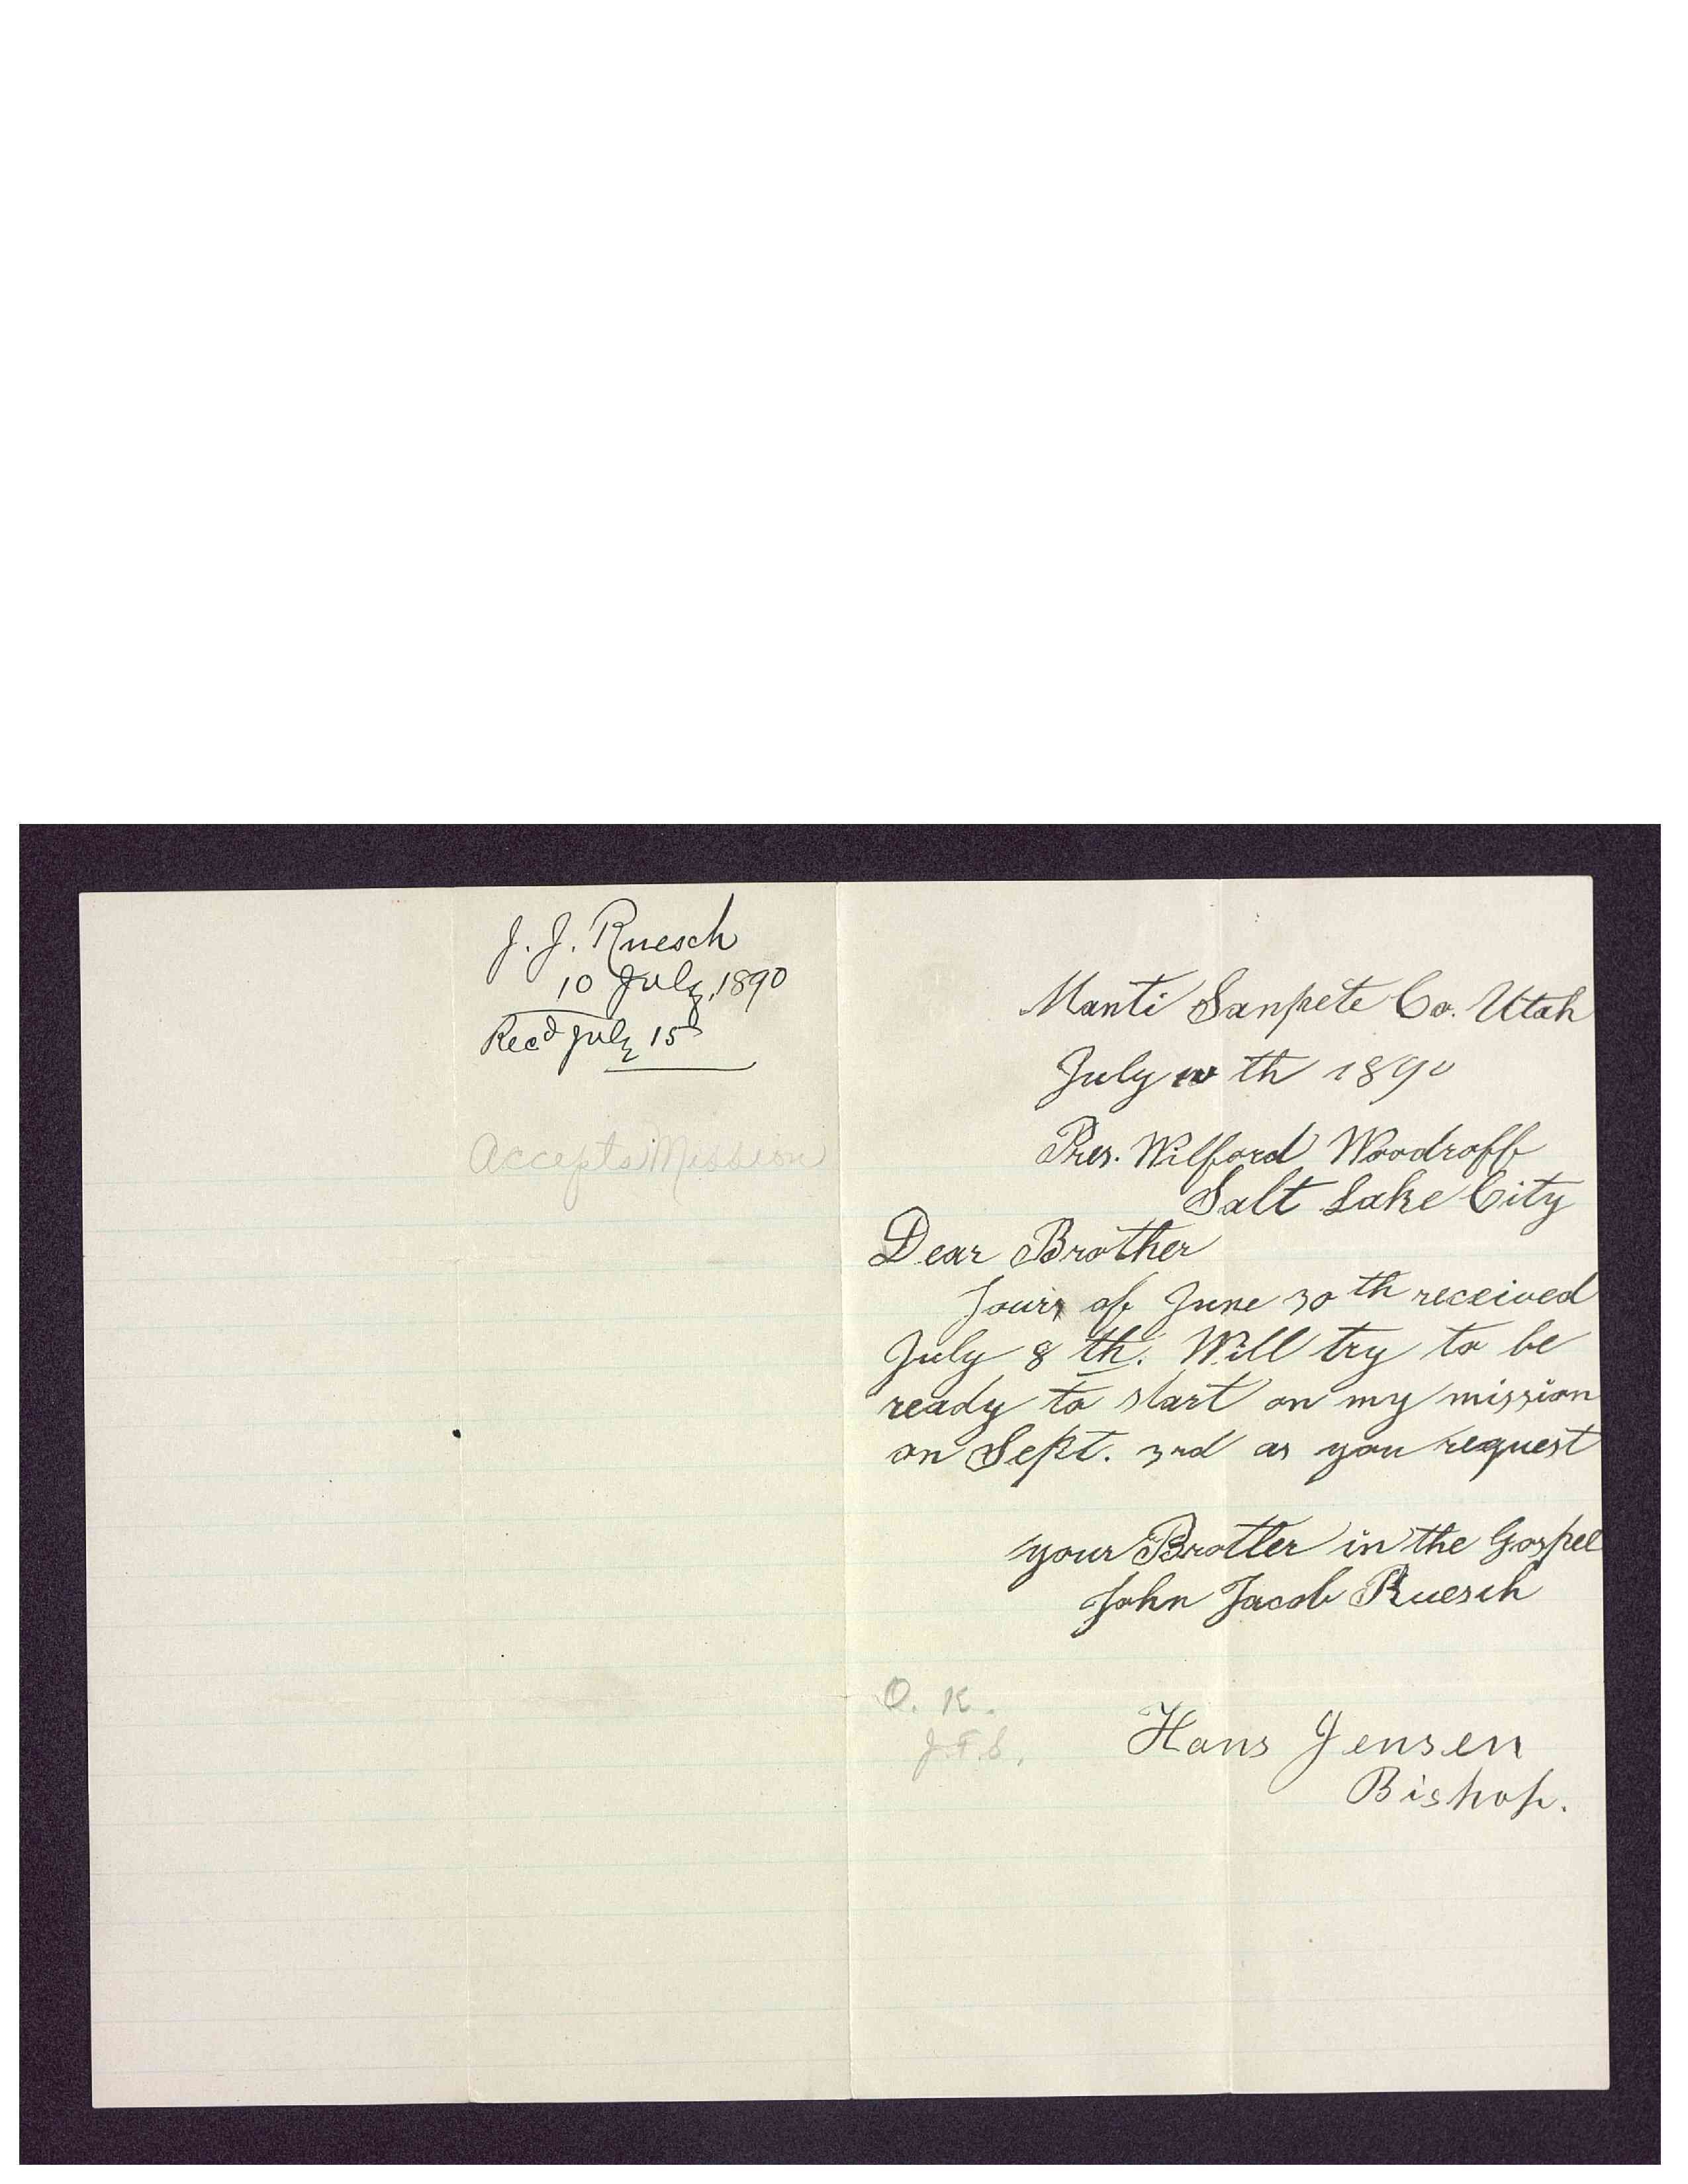 J. J. Ruesch
10 July, 1890
Recd July 15
Accepts Mission
Manti Sanpete Co. Utah
July 10 th 1890
Pres. Wilford Woodroff
Salt Lake City
Dear Brother
Yours of June 30th received
July 8 th. Will try to be
ready to start on my mission
on Sept. 3rd as you request
your Brotler in the Gospel
John Jacob Ruesch
O. K.
J. F. S.
Hans Jensen
Bishop.